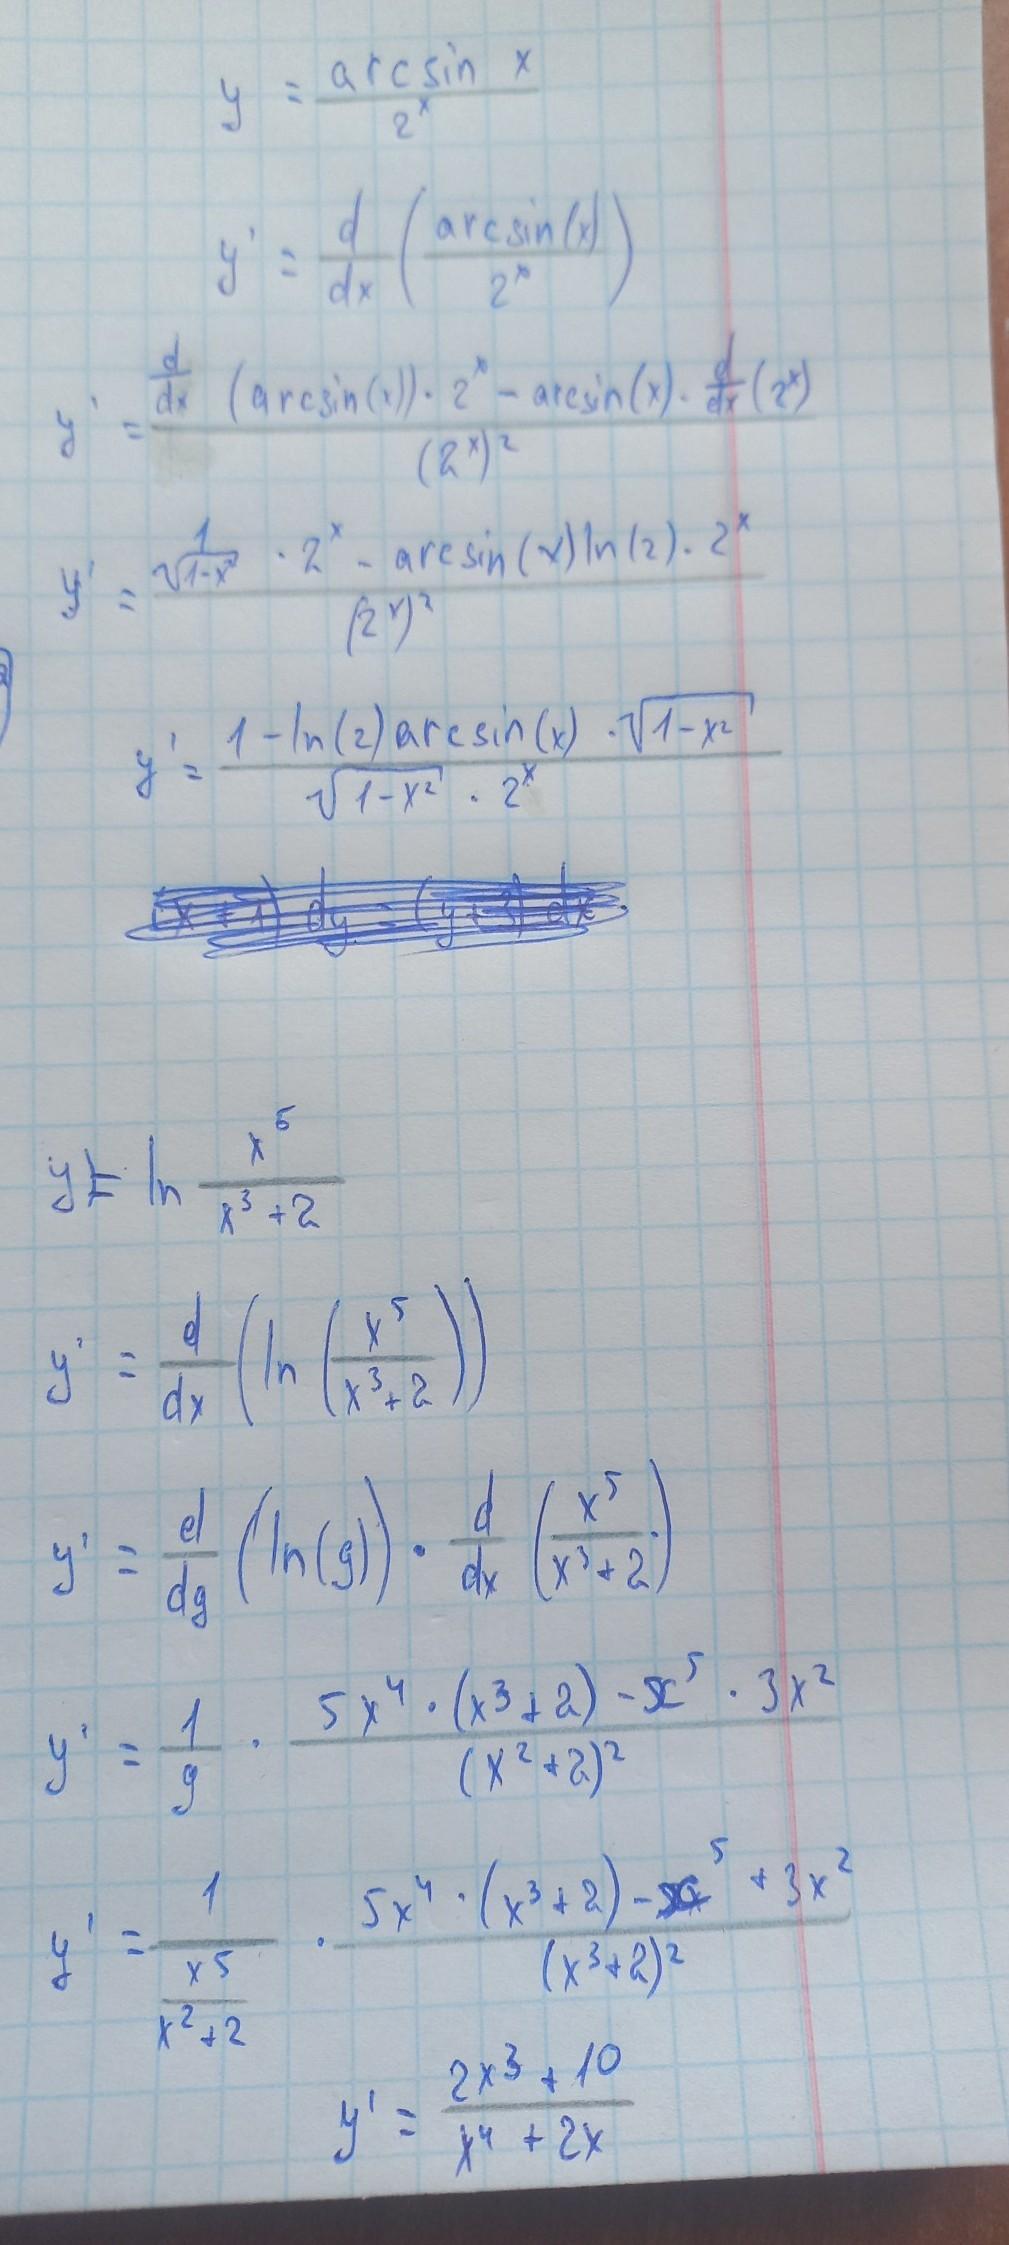 y = arcsin x / 2^x
y' = d/dx (arcsin(x) / 2^x)
y' = (d/dx (arcsin(x)) · 2^x - arcsin(x) · d/dx (2^x)) / (2^x)^2
y' = (1/√(1-x²) · 2^x - arcsin(x) ln(2) · 2^x) / (2^x)^2
y' = (1 - ln(2) arcsin(x) · √(1-x²)) / (√(1-x²) · 2^x)
y = ln x^5 / (x^3 + 2)
y' = d/dx (ln (x^5 / (x^3 + 2)))
y' = d/dg (ln(g)) · d/dx (x^5 / (x^3 + 2))
y' = 1/g · (5x^4 · (x^3 + 2) - x^5 · 3x^2) / (x^2 + 2)^2
y' = 1 / (x^5 / (x^2 + 2)) · (5x^4 · (x^3 + 2) - x^5 + 3x^2) / (x^3 + 2)^2
y' = (2x^3 + 10) / (x^4 + 2x)